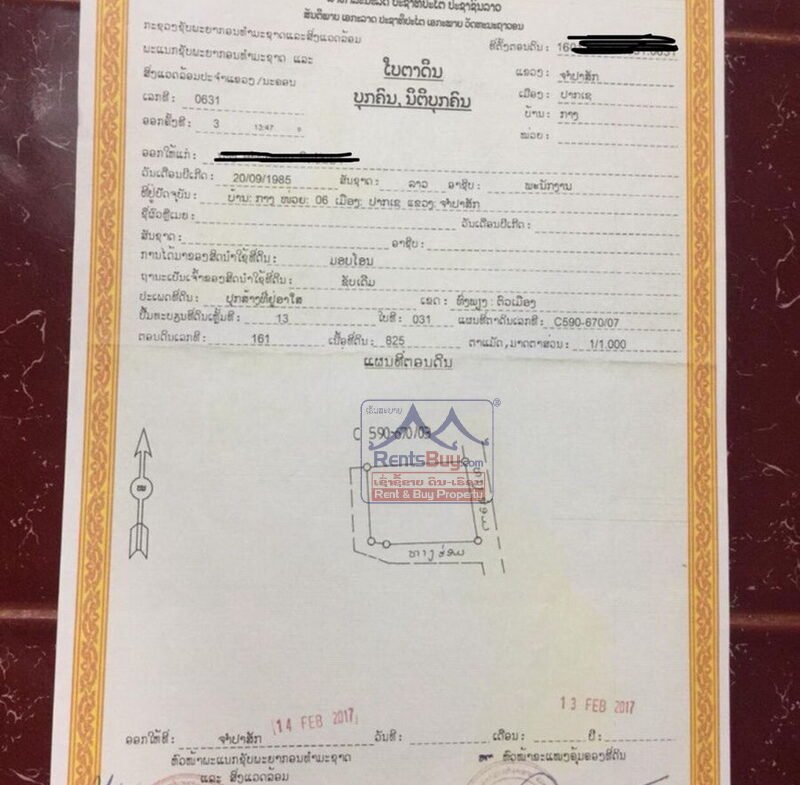 ປະຊາທິປະໄຕ ປະຊາຊົນລາວ
ສັນຕິພາບ ເອກະລາດ ປະຊາທິປະໄຕ ເອກະພາບ ວັດທະນະຖາວອນ
ກະຊວງຊັບພະຍາກອນທຳມະຊາດແລະສິ່ງແວດລ້ອມ
ພະແນກຊັບພະຍາກອນທຳມະຊາດ ແລະ
ສິ່ງແວດລ້ອມປະຈຳແຂວງ/ນະຄອນ
ເລກທີ : 0631
ອອກຄັ້ງທີ : 3 13:47 9
ໃບຕາດິນ
ບຸກຄົນ, ນິຕິບຸກຄົນ
ທີ່ຕັ້ງຕອນດິນ :
ແຂວງ : ຈຳປາສັກ
ເມືອງ : ປາກເຊ
ບ້ານ : ກາງ
ໜ່ວຍ :
ອອກໃຫ້ແກ່ :
ວັນເດືອນປີເກີດ : 20/09/1985 ສັນຊາດ : ລາວ ອາຊີບ : ພະນັກງານ
ທີ່ຢູ່ປັດຈຸບັນ : ບ້ານ: ກາງ ໜ່ວຍ: 06 ເມືອງ: ປາກເຊ ແຂວງ: ຈຳປາສັກ
ຊື່ຜົວຫຼືເມຍ : ວັນເດືອນປີເກີດ :
ສັນຊາດ : ອາຊີບ :
ການໄດ້ມາຂອງສິດນຳໃຊ້ທີ່ດິນ : ມອບໂອນ
ຖານະເປັນເຈົ້າຂອງສິດນຳໃຊ້ທີ່ດິນ : ຊັບເດີມ
ປະເພດທີ່ດິນ : ປຸກສ້າງທີ່ຢູ່ອາໄສ ເຂດ : ທົ່ງພຽງ : ຕົວເມືອງ
ປຶ້ມທະບຽນທີ່ດິນເຫຼັ້ມທີ : 13 ໃບທີ : 031 ແຜນທີ່ຕາດິນເລກທີ : C590-670/07
ຕອນດິນເລກທີ : 161 ເນື້ອທີ່ດິນ : 825 ຕາແມັດ , ມາດຕາສ່ວນ : 1/1.000
ແຜນທີ່ຕອນດິນ
C 590-670/03
RentsBuy.com
ເຊົ່າຊື້ຂາຍ ດິນ-ເຮືອນ
Rent & Buy Property
®
ທາງຮ່ອມ
14 FEB 2017
13 FEB 2017
ອອກໃຫ້ທີ່ : ຈຳປາສັກ ວັນທີ : ເດືອນ : ປີ :
ຫົວໜ້າພະແນກຊັບພະຍາກອນທຳມະຊາດ
ແລະ ສິ່ງແວດລ້ອມ